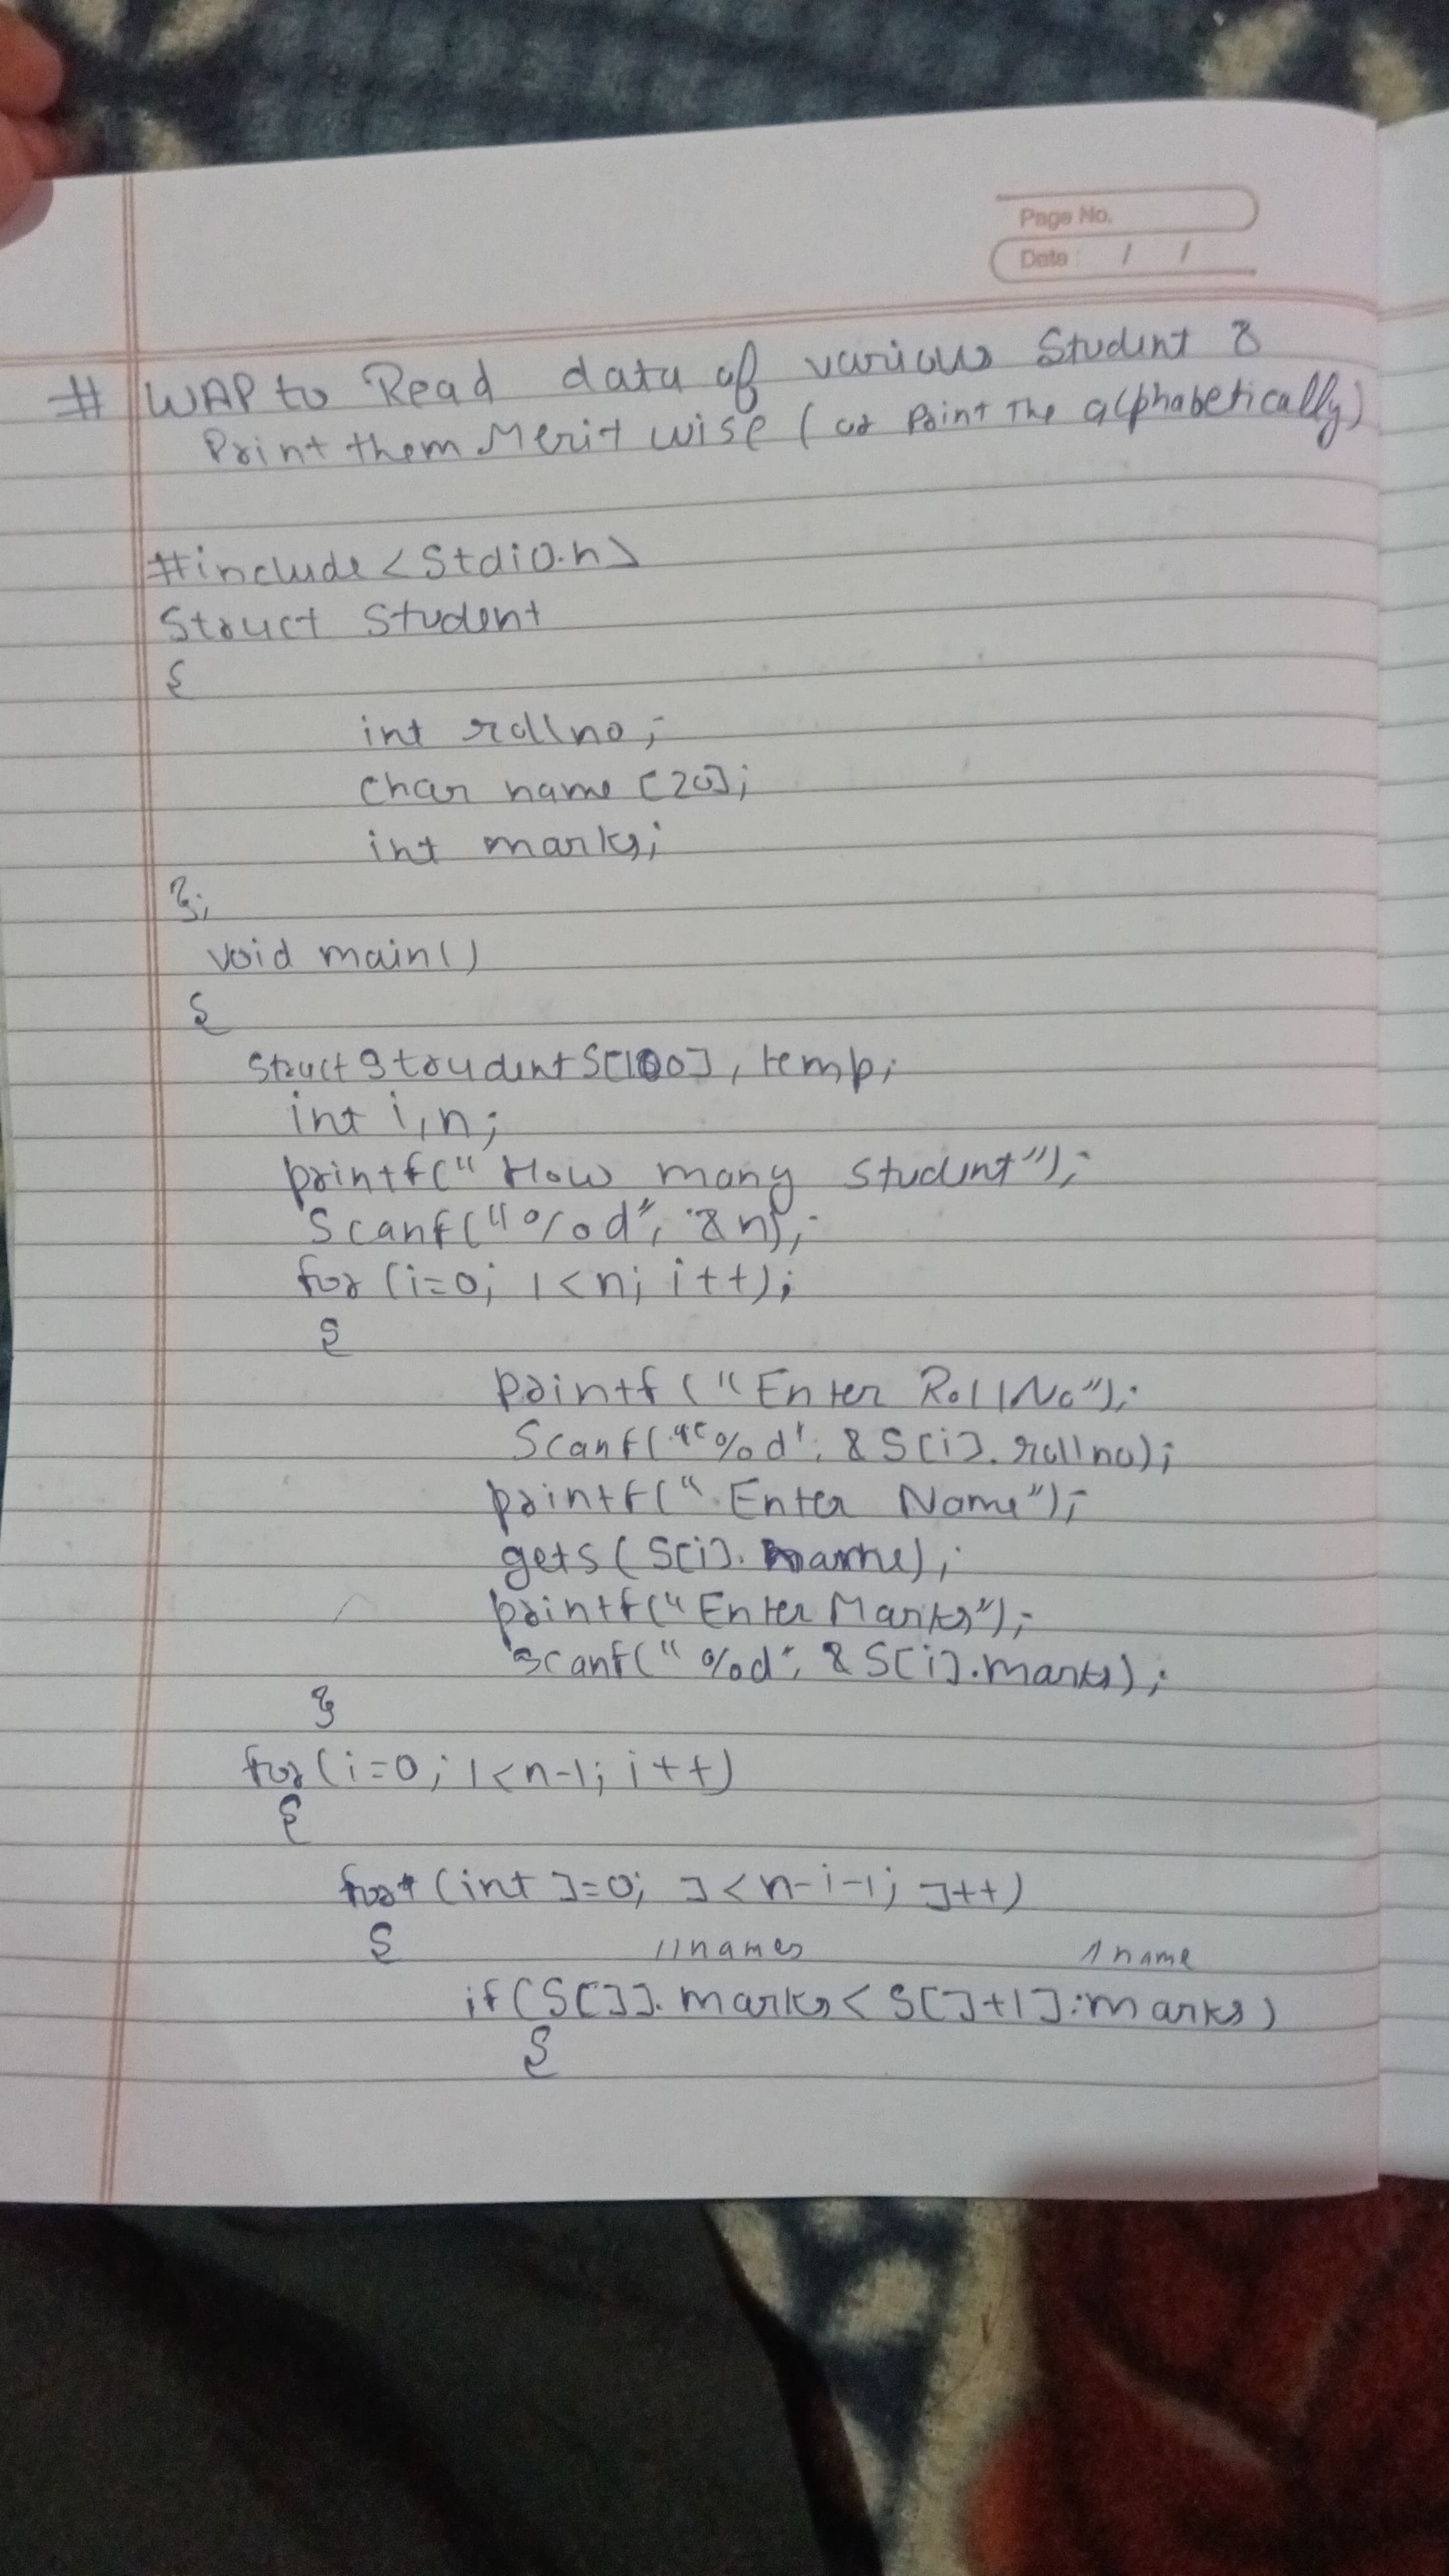 Page No.
Date : / /
# WAP to Read data of various Student &
Print them Merit wise (or Print The alphabetically)
#include <Stdio.h>
Struct Student
{
int rollno;
char name [20];
int marks;
};
void main()
{
Struct Stoudent S[100], temp;
int i,n;
printf("How many Student");
Scanf("%d", &n);
for (i=0; i<n; i++);
{
printf("Enter RollNo");
Scanf("%d", &S[i].rollno);
printf("Enter Name");
gets(S[i].name);
printf("Enter Marks");
scanf("%d", &S[i].marks);
}
for(i=0; i<n-1; i++)
{
for (int J=0; J<n-i-1; J++)
{
//names //name
if(S[J].marks<S[J+1].marks)
{